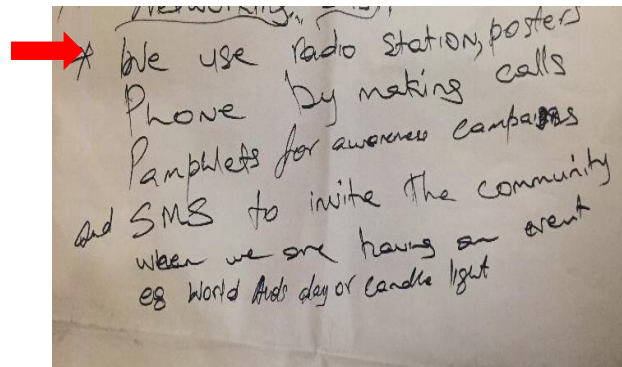 Networking
* We use radio station, posters
Phone by making calls
Pamphlets for awareness campaigns
and SMS to invite the community
when we are having an event
eg World Aids day or candle light